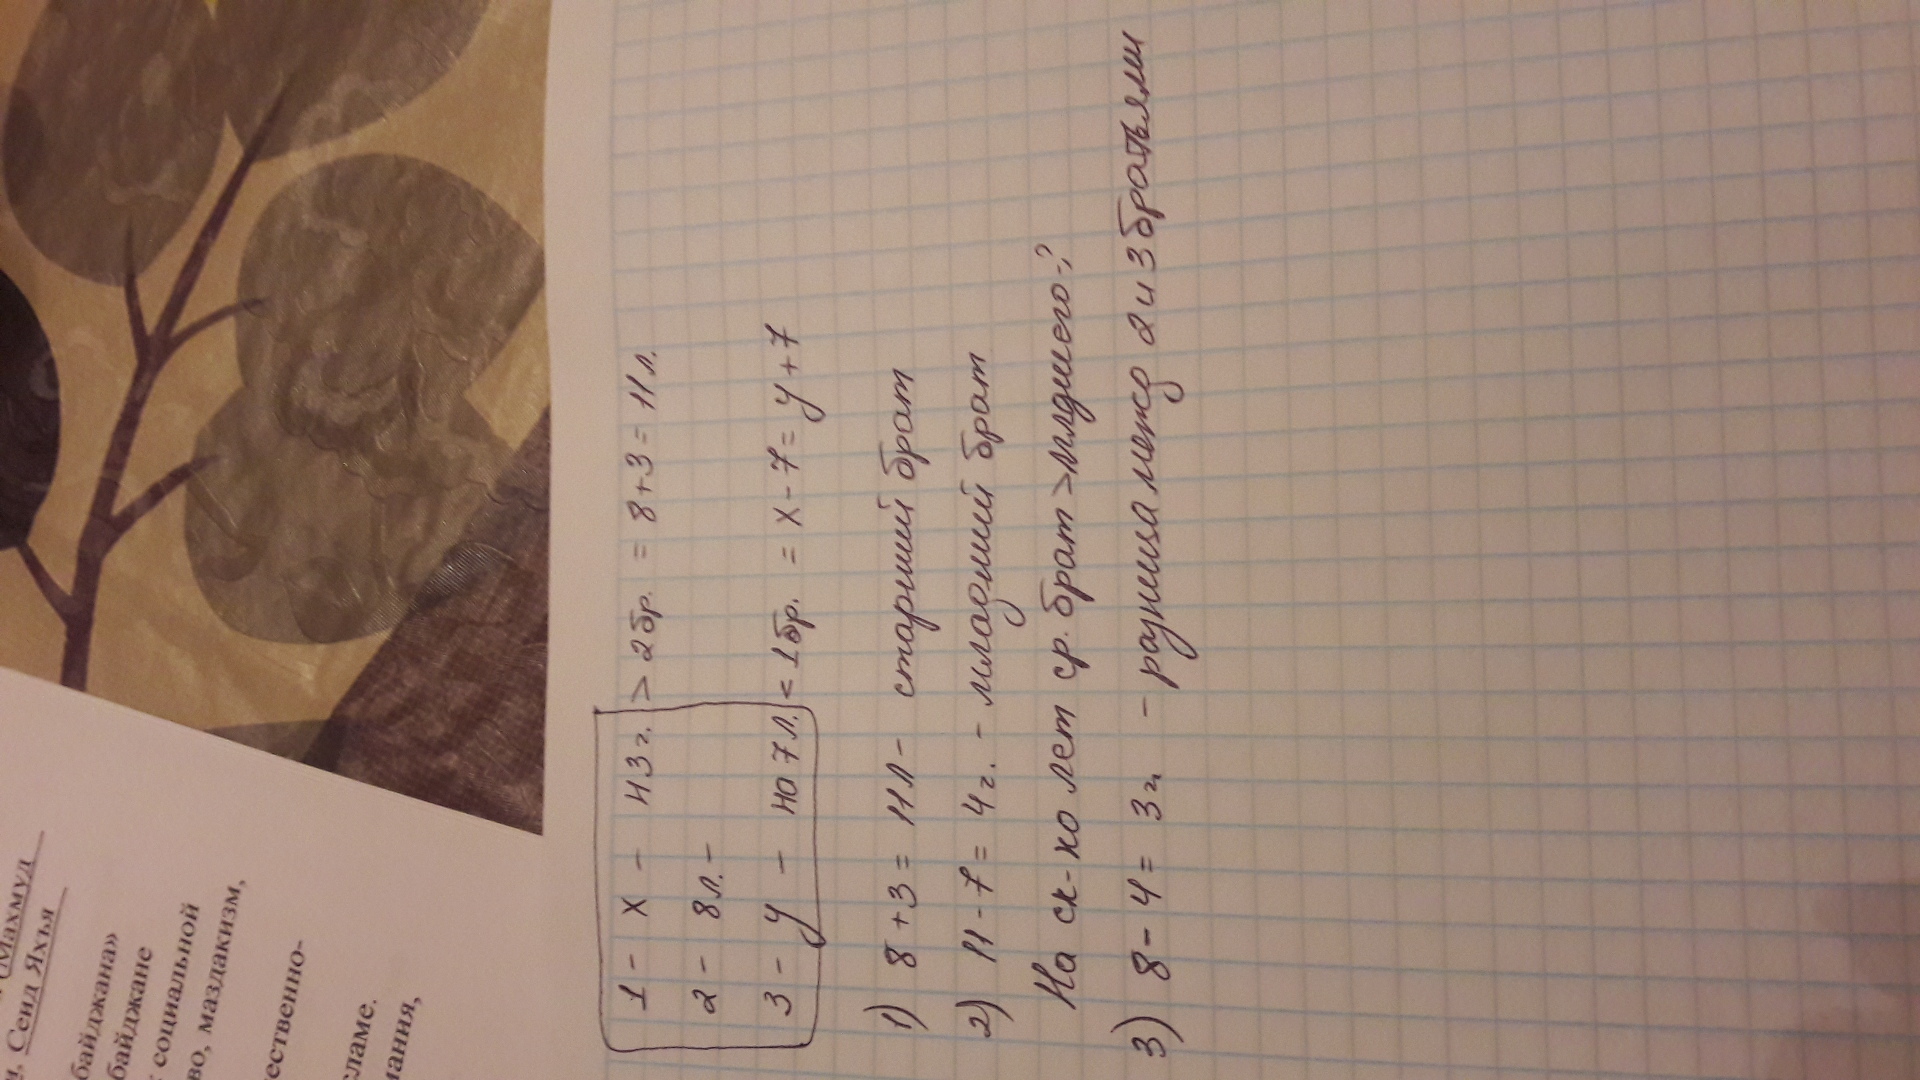 (Махмуд
Сеид Яхъя
байджана»
байджане
социальной
во, маздакизм,
ественно-
сламе.
мания,
1 - х - н 3 г. > 2 бр. = 8 + 3 = 11 л.
2 - 8 л. -
3 - у - на 7 л. < 1 бр. = х - 7 = у + 7
1) 8 + 3 = 11 л - старший брат
2) 11 - 7 = 4 г. - младший брат
На ск-ко лет ср. брат > младшего-?
3) 8 - 4 = 3 г. - разница межд 2 и 3 братьями